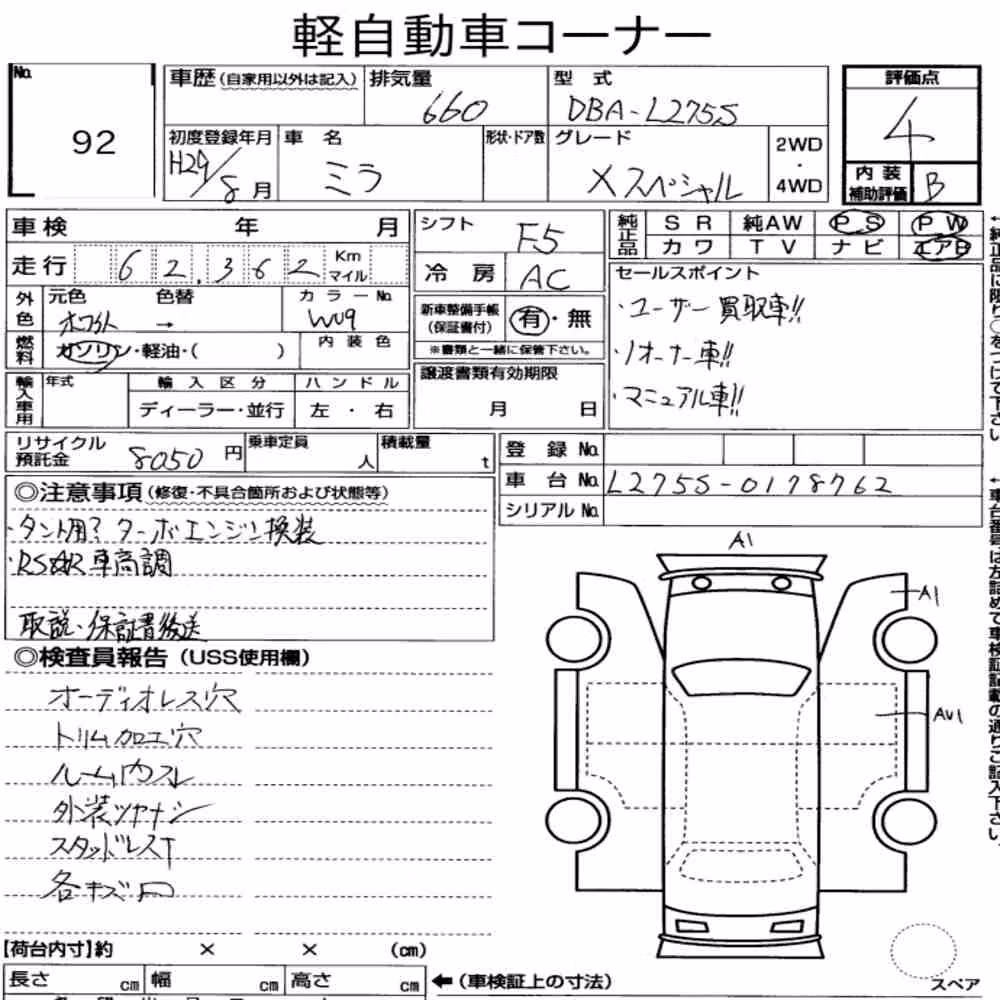 軽自動車コーナー
No. 92
車歴 (自家用以外は記入)
排気量 660
型式 DBA-L275S
評価点 4
初度登録年月 H29/8月
車名 ミラ
形状・ドア数
グレード Xスペシャル
2WD・4WD
内装補助評価 B
車検 年 月
走行 62,362 Km マイル
シフト F5
冷房 AC
純正品 SR 純AW PS PW
カワ TV ナビ エアB
外色 元色 ホワイト 色替 → カラーNo. W09
燃料 ガソリン・軽油・( ) 内装色
新車整備手帳(保証書付) 有・無
※書類と一緒に保管下さい。
セールスポイント
・ユーザー買取車!!
・1オーナー車!!
・マニュアル車!!
輸入車用 年式 輸入区分 ハンドル
ディーラー・並行 左・右
譲渡書類有効期限
月 日
リサイクル預託金 8050円
乗車定員 人
積載量 t
登録No.
車台No. L275S-0178762
シリアルNo.
◎注意事項(修復・不具合箇所および状態等)
・タント用?ターボエンジン換装
・RS☆R車高調
取説・保証書後送
◎検査員報告(USS使用欄)
オーディオレス穴
トリム加工穴
ルーム内スレ
外装ツヤナシ
スタッドレスT
各キズ凹
A1
A1
AU1
【荷台内寸】約 × × (cm)
長さ cm 幅 cm 高さ cm
←(車検証上の寸法)
スペア
←純正品に限り○をつけて下さい
←車台番号は左詰めで車検証記載の通りご記入下さい。